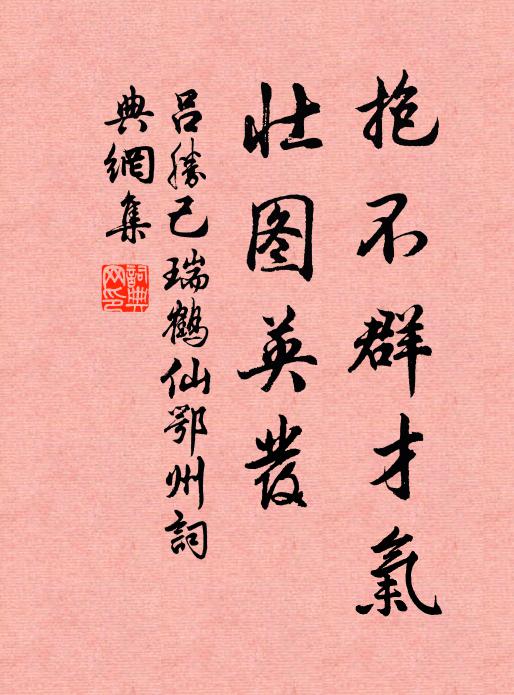 抱不群才氣
壮图英發
吕勝己瑞鶴仙鄂州詞
典網集
詞典网印